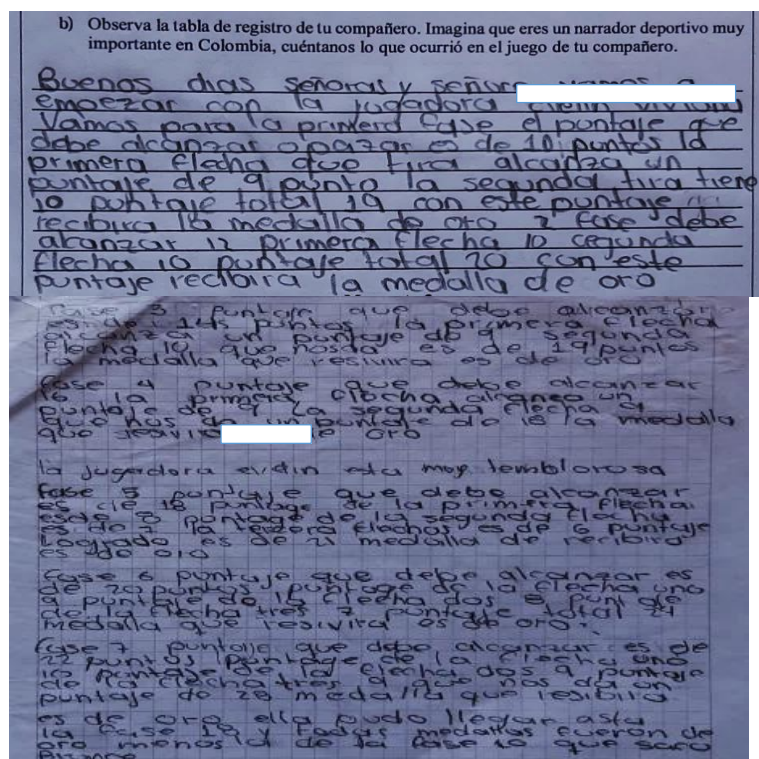 b) Observa la tabla de registro de tu compañero. Imagina que eres un narrador deportivo muy
importante en Colombia, cuéntanos lo que ocurrió en el juego de tu compañero.
Buenos dias señoras y señore vamos a
empezar con la jugadora
Vamos para la primera fase el puntaje que
debe alcanzar o pazar es de 10 puntos la
primera flecha que tira alcanza un
puntaje de 9 punto la segunda tira tiene
10 puntaje total 19 con este puntaje
recibira la medalla de oro 2 fase debe
alcanzar 12 primera flecha 10 cegunda
flecha 10 puntaje total 20 con este
puntaje recibira la medalla de oro
Fase 3 puntaje que debe alcanzar
puntos la primera flecha
alcanzar un puntaje de 9 segunda
flecha 10 que nosda es de 19 puntos
la medalla que resivira es de oro
fase 4 puntaje que debe alccanzar
16 la primera flecha alcanza un
puntaje de 9 la segunda flecha 9
que nos da un puntaje de 18 la medalla
que resivira de oro
la jugadora esta muy temblorosa
fase 5 puntaje que debe alcanzar
es de 18 puntaje de la primera flecha
es de puntaje de la segunda flecha
es de 7 la tersera flecha es de 6 puntaje
logrado es de 21 medalla de recibira
es de oro
fase 6 puntaje que debe alcanzar es
de 20 puntos puntaje de la flecha uno
9 puntaje de la flecha dos 8 puntaje
de la flecha tres 7 puntaje total 24
medalla que resivira es de oro.
fase 7 puntaje que debe alcanzar es de
22 puntos puntaje de la flecha uno
10 puntaje de la flecha dos 9 puntaje
de la flecha tres 9 que nos da un
puntaje de 28 medalla que resibira
es de oro ella pudo llegar asta
la fase 10 y todas medallas fueron de
oro menos la de la fase 10 que saco